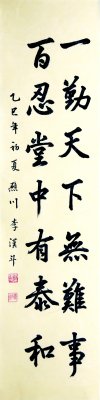 一勤天下無難事
百忍堂中有泰和
乙巳年初夏 顥川 李漢斗